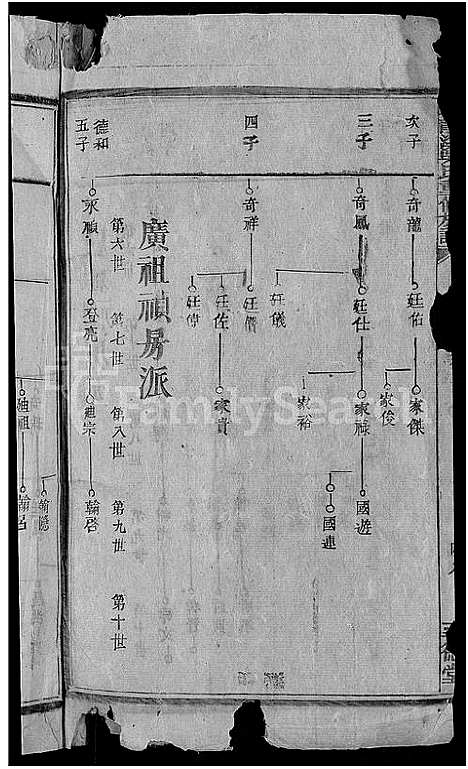 次子
奇龍
廷佑
家傑
家俊
三子
奇鳳
廷仕
家祿
國遊
國連
家裕
廷儀
四子
奇祥
廷儒
廷佐
家貴
廷傅
廣祖禎房派
第六世
第七世
第八世
第九世
第十世
德和
五子
永禎
登亮
建宗
翰啓
FamilySearch